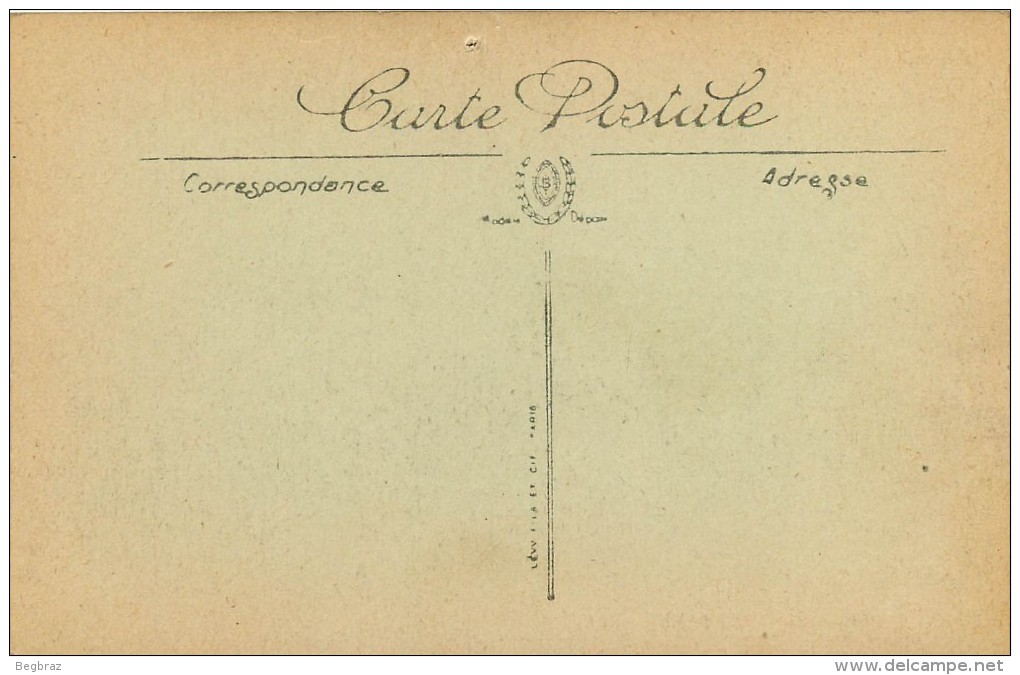 Carte Postale
Correspondance
Adresse
S
LÉVY FILS ET CIE PARIS
Begbraz
www.delcampe.net